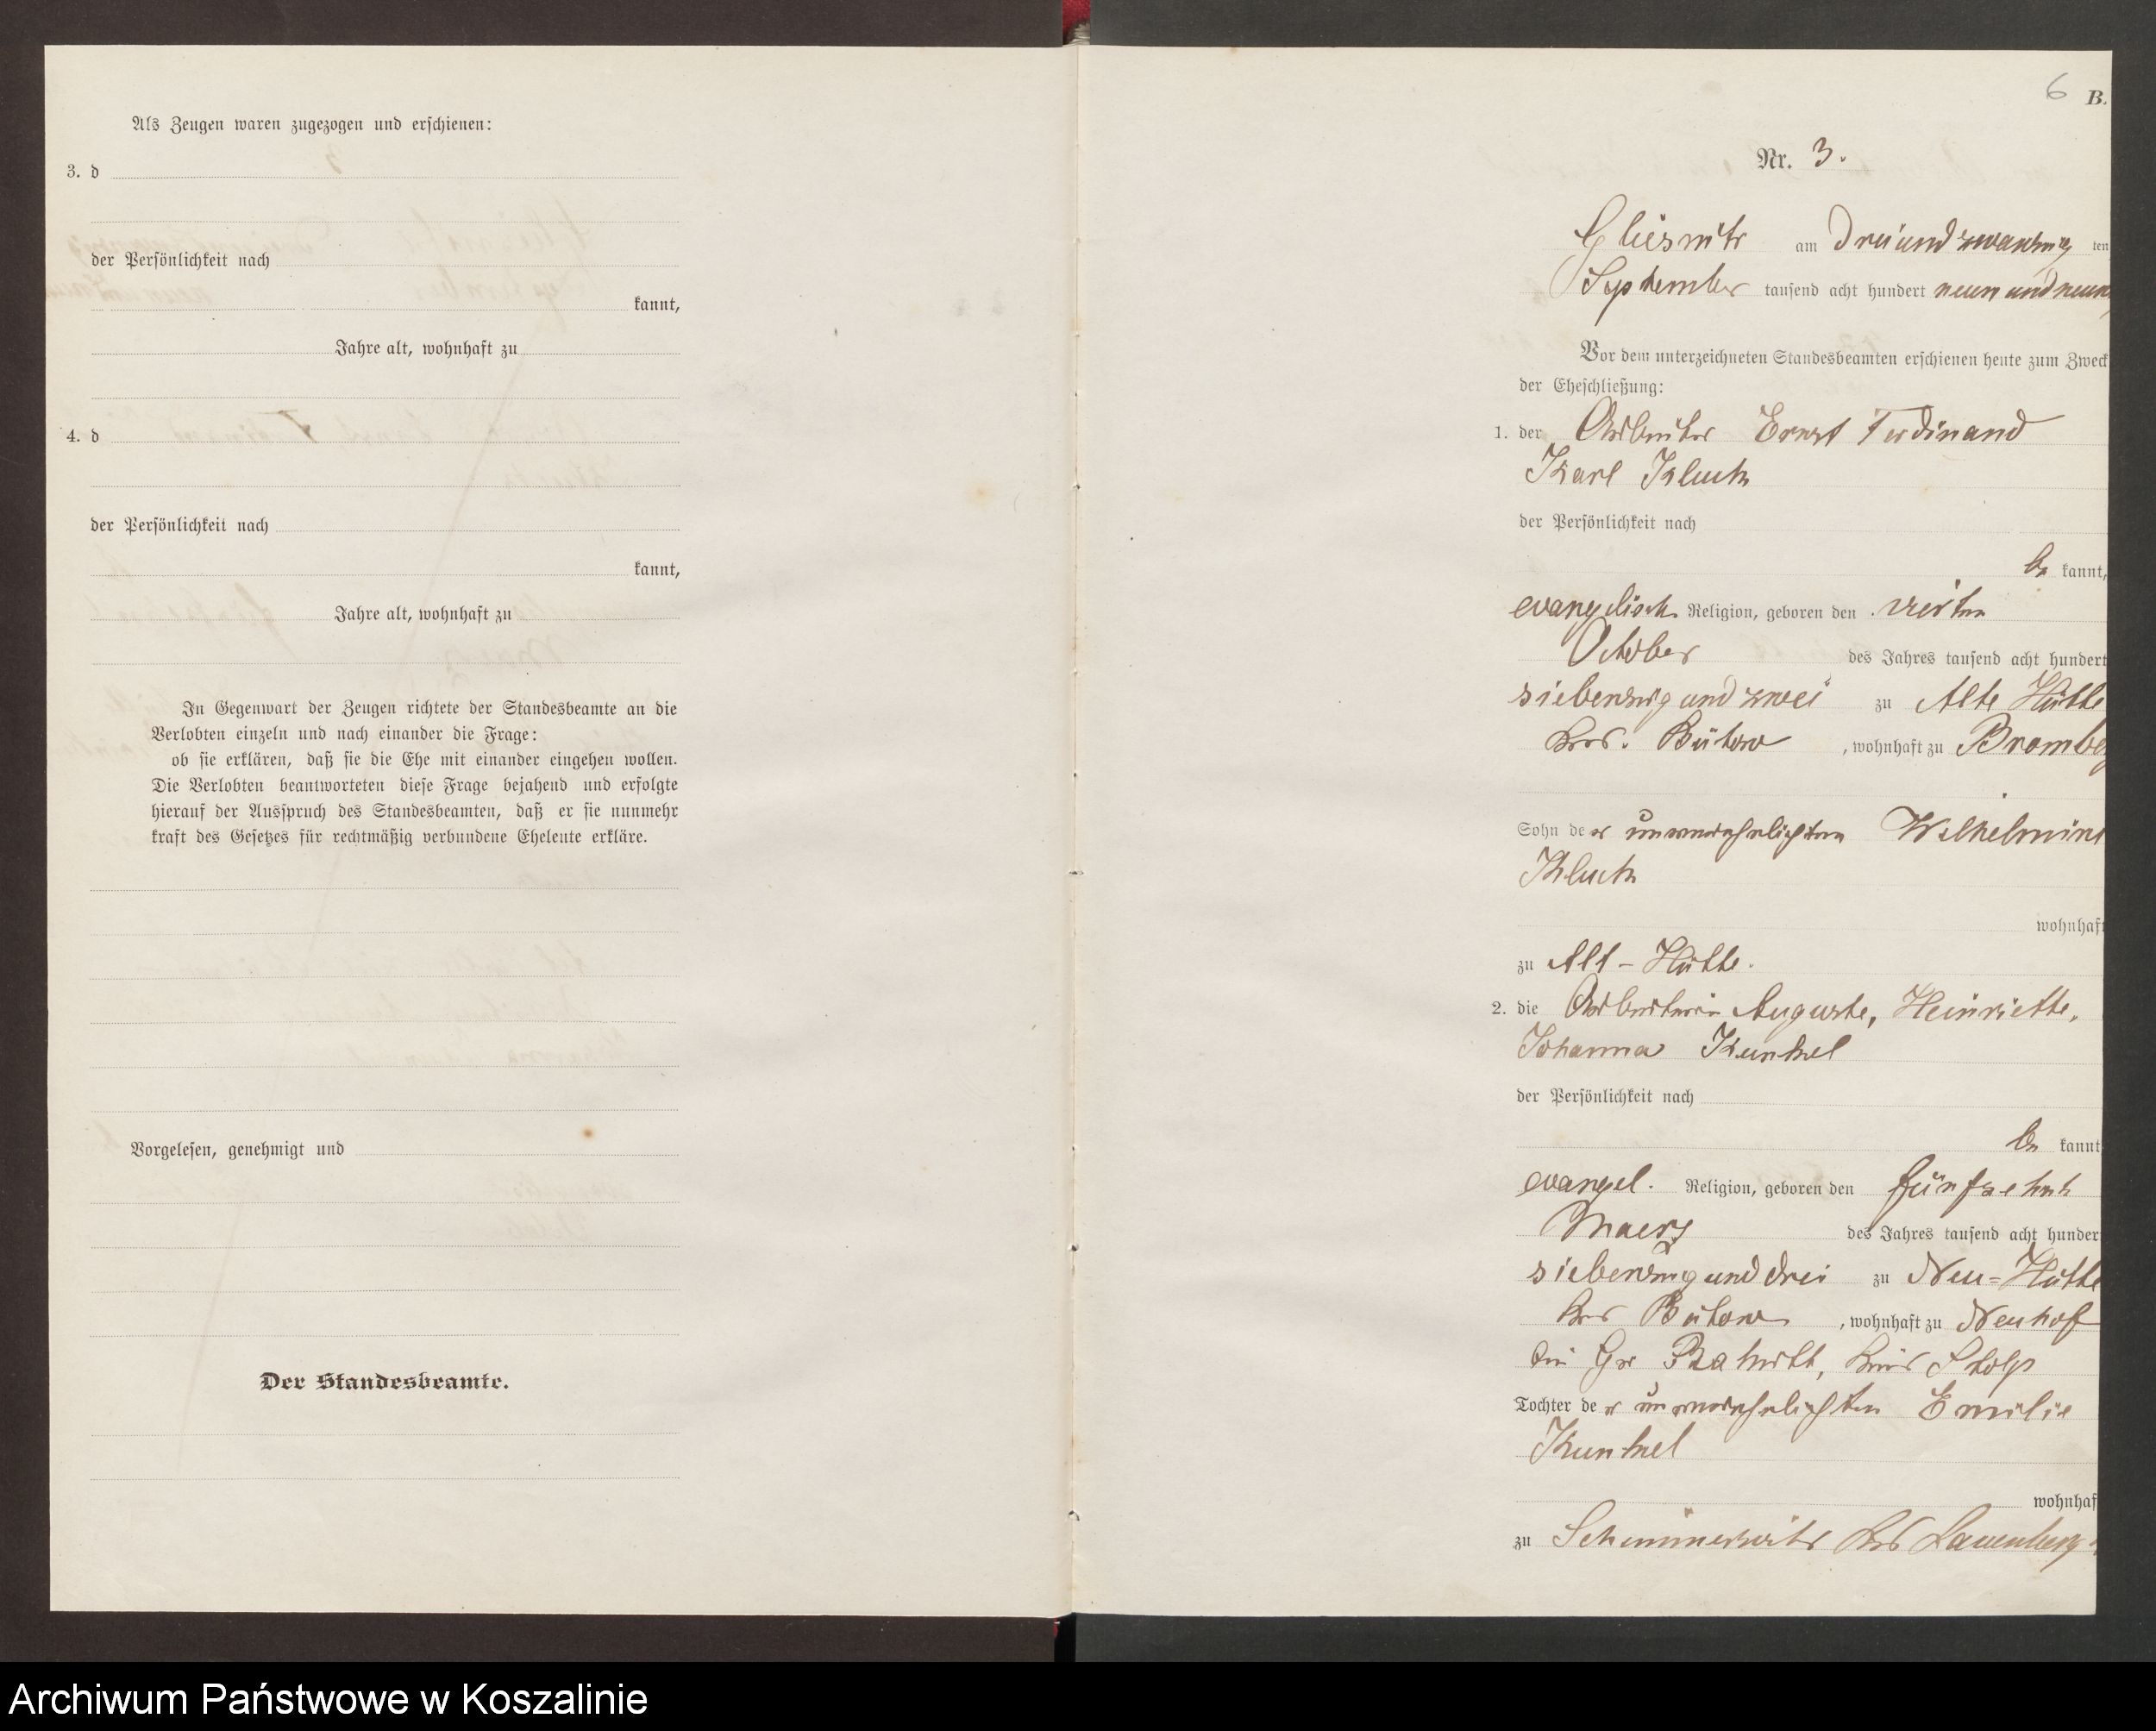 Als Zeugen waren zugezogen und erschienen:
3. d
der Persönlichkeit nach
kannt,
Jahre alt, wohnhaft zu
4. d
der Persönlichkeit nach
kannt,
Jahre alt, wohnhaft zu
In Gegenwart der Zeugen richtete der Standesbeamte an die
Verlobten einzeln und nach einander die Frage:
ob sie erklären, daß sie die Ehe mit einander eingehen wollen.
Die Verlobten beantworteten diese Frage bejahend und erfolgte
hierauf der Ausspruch des Standesbeamten, daß er sie nunmehr
kraft des Gesetzes für rechtmäßig verbundene Eheleute erkläre.
Vorgelesen, genehmigt und
Der Standesbeamte.
6 B.
Nr. 3.
Gliesnitz am Dreiundzwanzig ten
September tausend acht hundert neun und neun
Vor dem unterzeichneten Standesbeamten erschienen heute zum Zweck
der Eheschließung:
1. der Arbeiter Ernst Ferdinand
Karl Kluck
der Persönlichkeit nach
be kannt,
evangelisch Religion, geboren den vierten
October des Jahres tausend acht hundert
siebenzig und zwei zu Alte Hütte
Krs. Bütow, wohnhaft zu Bromberg
Sohn der unverehelichten Wilhelmine
Kluck
wohnhaft
zu Alt-Hütte.
2. die Arbeiterin Auguste, Heinriette,
Johanna Kunkel
der Persönlichkeit nach
be kannt
evangel. Religion, geboren den fünfzehnt
Maerz des Jahres tausend acht hunder
siebenzig und drei zu Neu=Hütte
Krs Bütow, wohnhaft zu Neuhof
bei Gr Rakitt, Kreis Stolp
Tochter der unverehelichten Emilie
Kunkel
wohnhaf
zu Schimmerwitz Krs Lauenburg
Archiwum Państwowe w Koszalinie